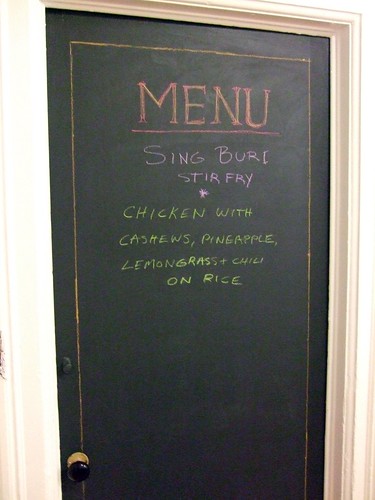 MENU
SING BURI
STIR FRY
*
CHICKEN WITH
CASHEWS, PINEAPPLE,
LEMONGRASS + CHILI
ON RICE